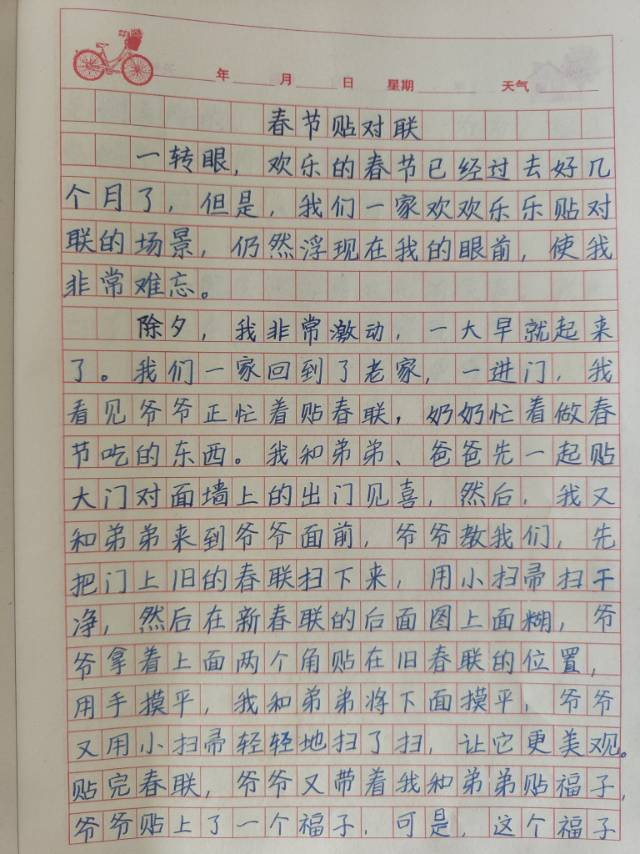 年 月 日 星期 天气
春节贴对联
一转眼，欢乐的春节已经过去好几
个月了，但是，我们一家欢欢乐乐贴对
联的场景，仍然浮现在我的眼前，使我
非常难忘。
除夕，我非常激动，一大早就起来
了。我们一家回到了老家，一进门，我
看见爷爷正忙着贴春联，奶奶忙着做春
节吃的东西。我和弟弟、爸爸先一起贴
大门对面墙上的出门见喜，然后，我又
和弟弟来到爷爷面前，爷爷教我们，先
把门上旧的春联扫下来，用小扫帚扫干
净，然后在新春联的后面图上面糊，爷
爷拿着上面两个角贴在旧春联的位置，
用手摸平，我和弟弟将下面摸平，爷爷
又用小扫帚轻轻地扫了扫，让它更美观。
贴完春联，爷爷又带着我和弟弟贴福子，
爷爷贴上了一个福子，可是，这个福子